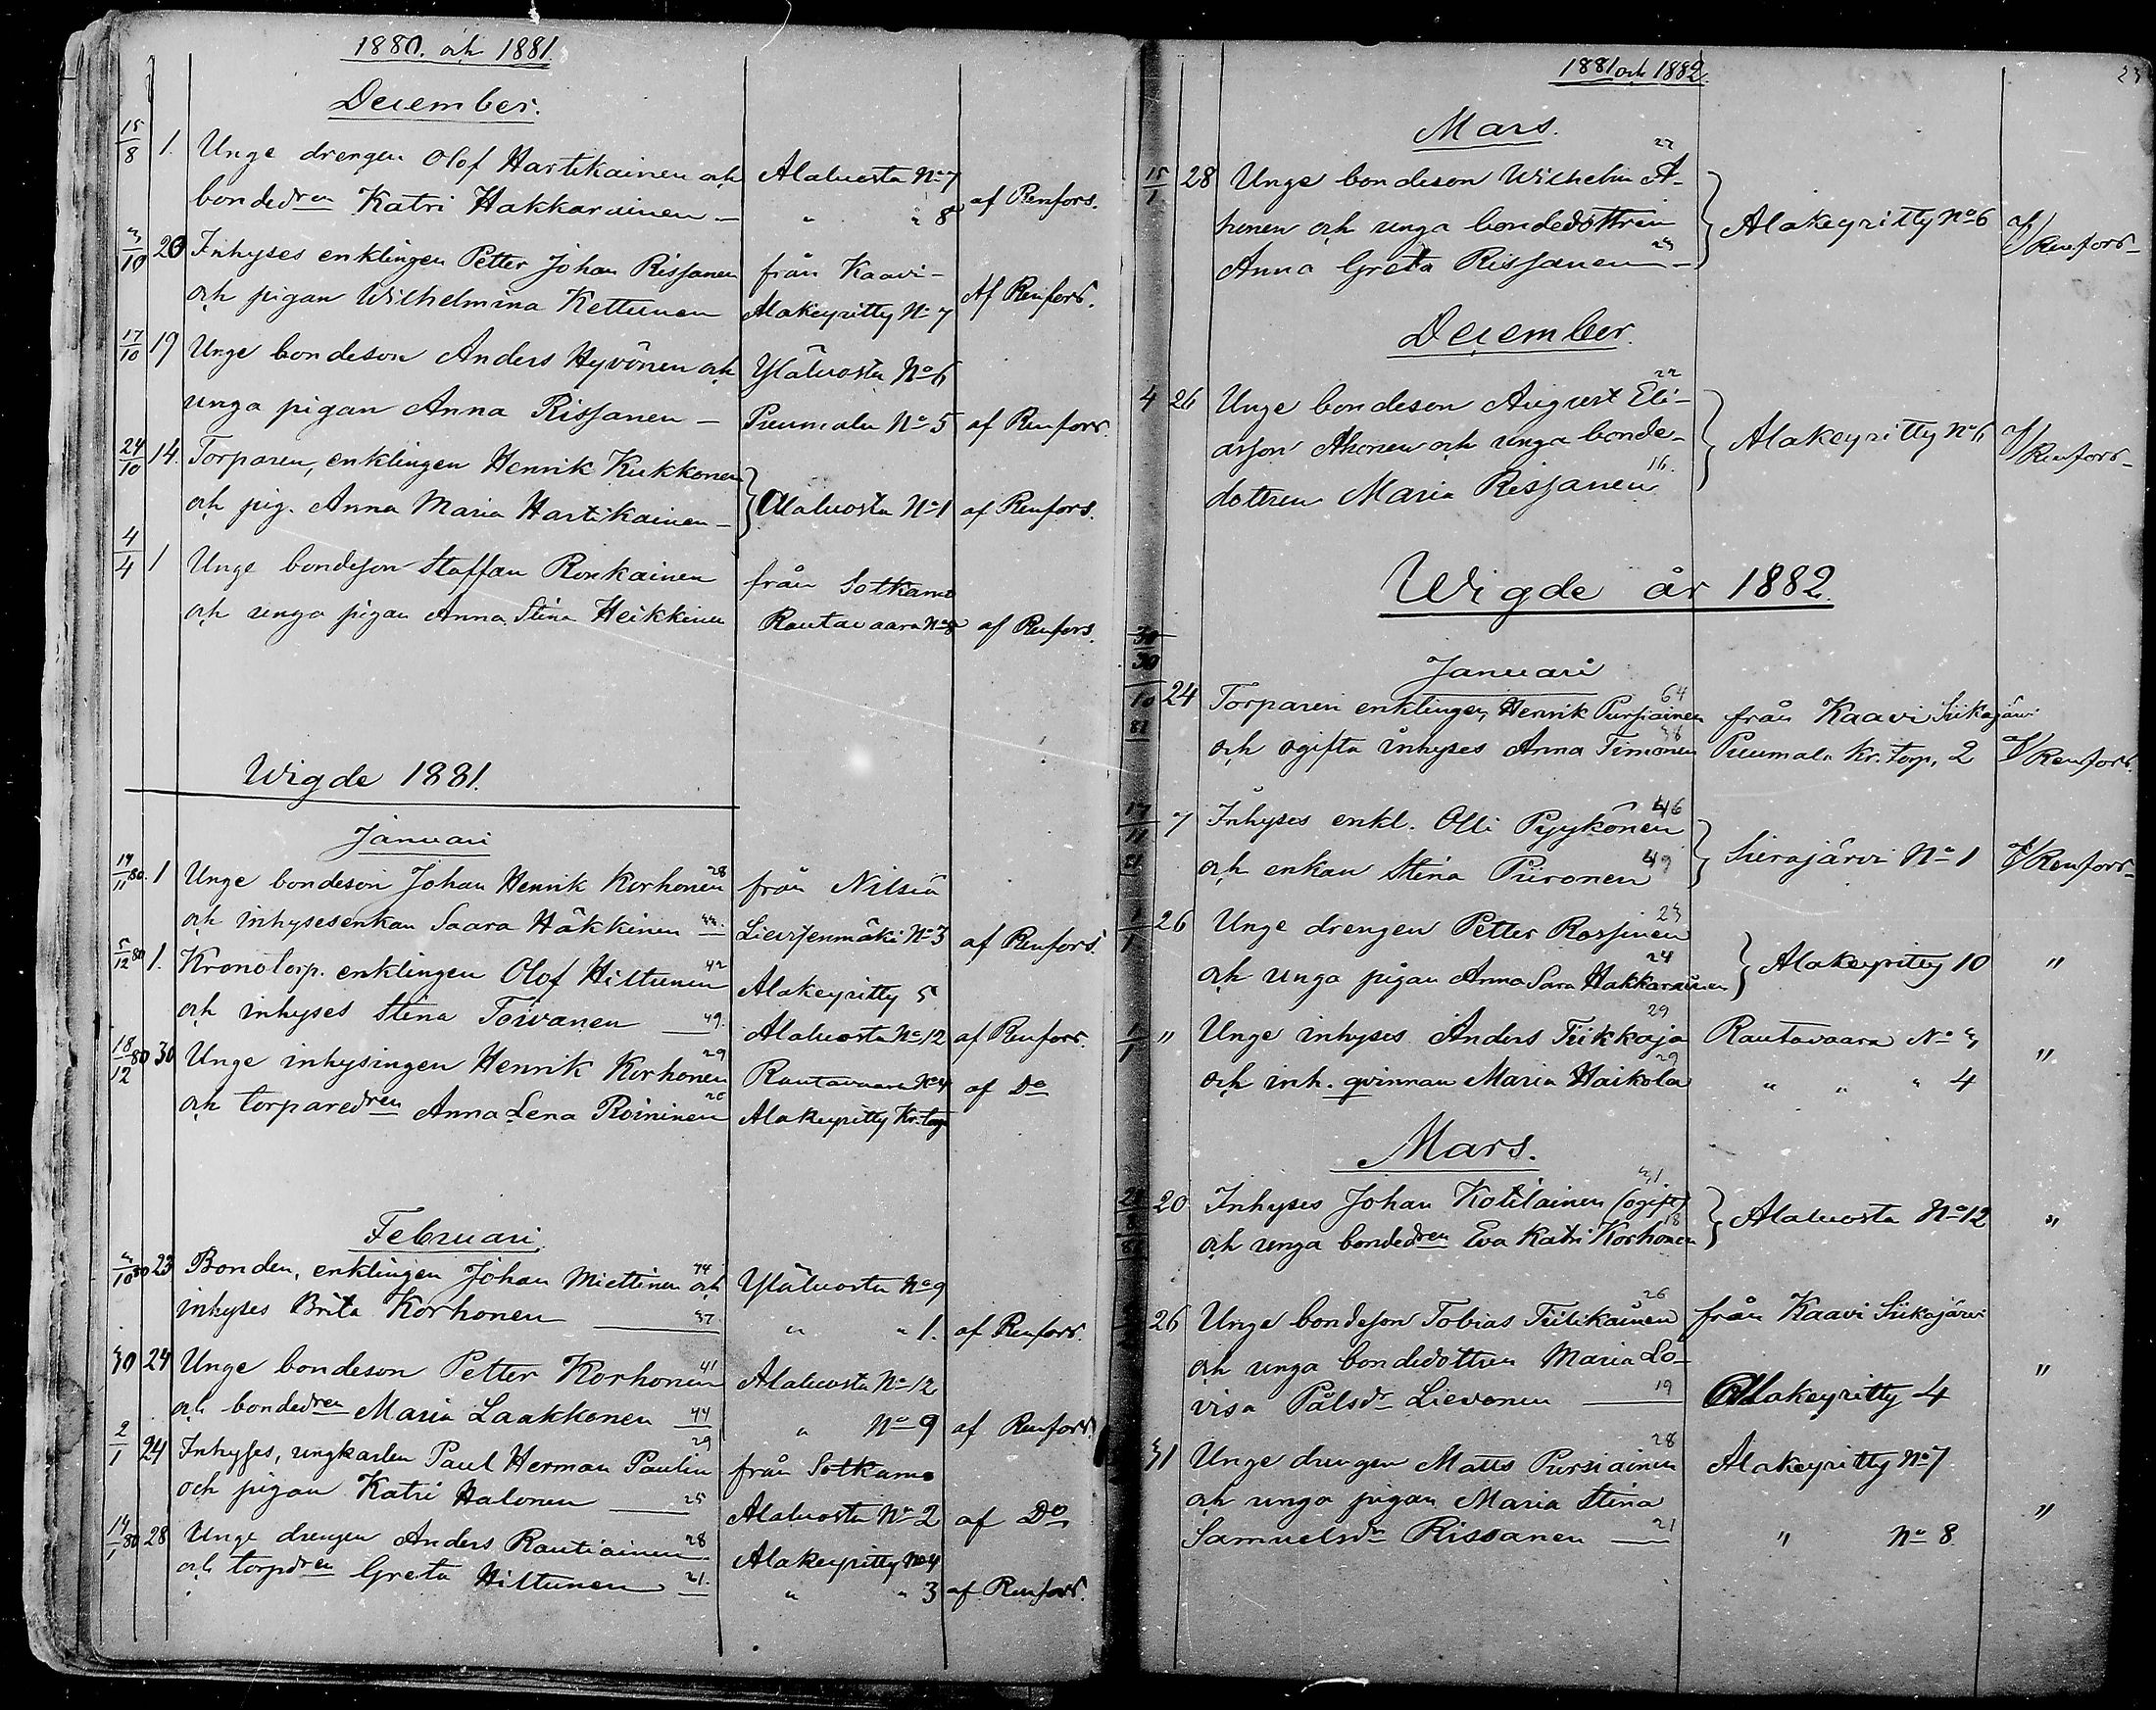 1880. och 1881.
December.
15/8 1. Unge drengen Olof Hartikainen och Alaluosta No 7
bondedren Katri Hakkarainen — " " 8 af Renfors.
3/10 20 Inhyses enklingen Petter Johan Rissanen från Kaavi-
och pigan Wilhelmina Kettunen Alakeyritty No 7 Af Renfors.
17/10 19 Unge bondeson Anders Hyvönen och Yläluosta No 6
unga pigan Anna Rissanen — Puumala No 5 af Renfors.
24/10 14. Torparen, enklingen Henrik Kukkonen
och pig. Anna Maria Hartikainen — } Alaluosta No 1 af Renfors.
4/4 1 Unge bondeson Staffan Ronkainen från Sotkamo
och unga pigan Anna Stina Heikkinen Rautavaara No 8 af Renfors.
Wigde 1881.
Januari
14/11 80. 1 Unge bondeson Johan Henrik Korhonen 28 från Nilsiä
och inhysesenkan Saara Häkkinen 33. Lievisenmäki No 3 af Renfors.
5/12 80 1. Kronotorp. enklingen Olof Hiltunen 42 Alakeyritty 5
och inhyses Stina Toivanen — 49. Alaluosta No 12 af Renfors.
18/12 80 30 Unge inhysingen Henrik Korhonen 29 Rautavaara No 4 af Do
och torparedren Anna Lena Roininen 20 Alakeyritty Kr. torp
Februari.
3/10 80 23 Bonden, enklingen Johan Miettinen 44 och Yläluosta No 9
inhyses Brita Korhonen — 37 " " 1. af Renfors.
30 24 Unge bondeson Petter Korhonen 41 Alaluosta No 12
och bondedren Maria Laakkonen 44 " No 9 af Renfors.
2/1 24 Inhyses, ungkarlen Paul Herman Paulin 29 från Sotkamo
och pigan Katri Halonen — 25 Alaluosta No 2 af Do
14/1 80 28 Unge drengen Anders Rautiainen 28 Alakeyritty No 4
och torpdren Greta Hiltunen 21. " " 3 af Renfors.
1881 och 1882.
23
Mars.
15/1 28 Unge bondeson Wilhelm A- 22
honen och unga bondedottren } Alakeyritty No 6 af Renfors —
Anna Greta Rissanen — 23
December.
4 26 Unge bondeson August Eli- 22
asson Ahonen och unga bonde- } Alakeyritty No 6 af Renfors —
dottren Maria Rissanen 16.
Wigde år 1882.
30
Januari
10/81 24 Torparen enklingen Henrik Pursiainen 64 från Kaavi Siikajärvi
och ogifta inhyses Anna Timonen 38 Puumala Kr. torp. 2 af Renfors.
17/11 81 7 Inhyses enkl. Olli Pyykönen 46
och enkan Stina Piironen 49 } Sierajärvi No 1 af Renfors —
1 26 Unge drengen Petter Rossinen 23
och unga pigan Anna Sara Hakkarainen 24 } Alakeyritty 10 "
1/1 " Unge inhyses Anders Tiikkaja 29 Rautavaara No 3
och inh. qvinnan Maria Haikola 29 " " " 4 "
Mars.
20 Inhyses Johan Kotilainen (ogift) 31
och unga bondedren Eva Katri Korhonen 18 } Alaluosta No 12 "
26 Unge bondeson Tobias Tiilikainen 26 från Kaavi Siikajärvi
och unga bondedottren Maria Lo-
visa Pålsdr Lievonen — 19 Alakeyritty 4 "
31 Unge drengen Matts Pursiainen 28 Alakeyritty No 7
och unga pigan Maria Stina
Samuelsdr Rissanen — 21 " No 8. "